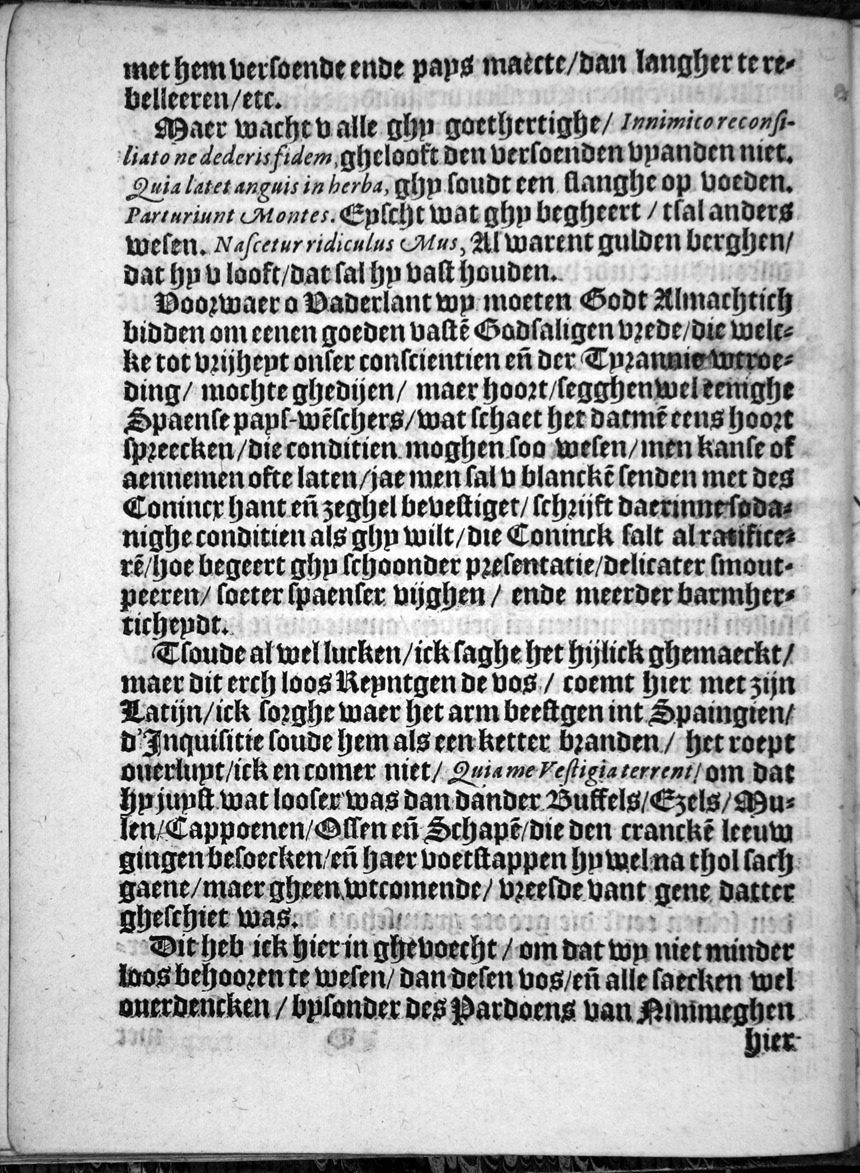 met hem versoende ende pays maecte/dan langher te re-
belleeren/etc.
Maer wacht v alle ghy goethertighe/ Innimico reconsi-
liato ne dederis fidem, ghelooft den versoenden vyanden niet.
Quia latet anguis in herba, ghy soudt een slanghe op voeden.
Parturiunt Montes. Eyscht wat ghy begheert / tsal anders
wesen. Nascetur ridiculus Mus, Al warent gulden berghen/
dat hy v looft/dat sal hy vast houden.
Voorwaer o Vaderlant wy moeten Godt Almachtich
bidden om eenen goeden vastē Godsaligen vrede/die welc-
ke tot vrijheyt onser conscientien eñ der Tyrannie wtroe-
ding/ mochte ghedijen/ maer hoort/segghen wel eenighe
Spaense pays-wēschers/wat schaet het datmē eens hoort
spreecken/die conditien moghen soo wesen/men kanse of
aennemen ofte laten/jae men sal v blanckē senden met des
Conincx hant eñ zeghel bevestiget/ schrijft daerinne soda-
nighe conditien als ghy wilt/die Coninck salt al ratifice-
rē/hoe begeert ghy schoonder presentatie/delicater smout-
peeren/ soeter spaenser vijghen / ende meerder barmher-
ticheydt.
Tsoude al wel lucken/ick saghe het hijlick ghemaeckt/
maer dit erch loos Reyntgen de vos / coemt hier met zijn
Latijn/ick sorghe waer het arm beestgen int Spaingien/
d'Inquisitie soude hem als een ketter branden / het roept
ouerluyt/ick en comer niet/ Quia me Vestigia terrent/ om dat
hy juyst wat looser was dan dander Buffels/Ezels/Mu-
len/Cappoenen/Ossen eñ Schapē/die den cranckē leeuw
gingen besoecken/eñ haer voetstappen hy wel na thol sach
gaene/maer gheen wtcomende/ vreesde vant gene datter
gheschiet was.
Dit heb ick hier in ghevoecht / om dat wy niet minder
loos behooren te wesen/ dan desen vos/eñ alle saecken wel
ouerdencken / bysonder des Pardoens van Nimmeghen
hier